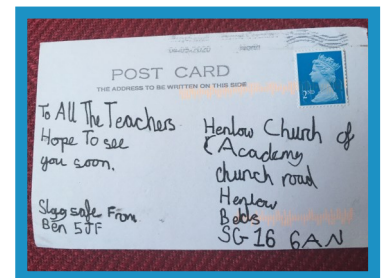 04-05-2020
POST CARD
THE ADDRESS TO BE WRITTEN ON THIS SIDE
2ND
To All The Teachers
Hope To see
you soon.
Stay safe From
Ben 5JF
Henlow Church of
Academy
church road
Henlow
Beds
SG16 6AN